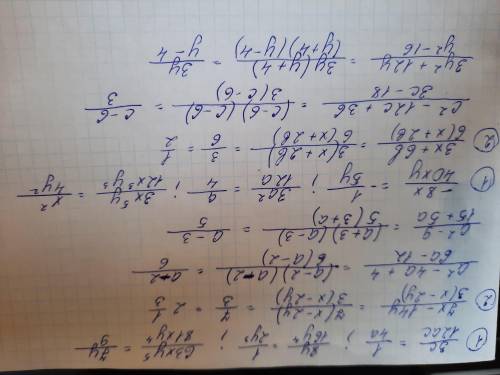 1) 3c/12ac = 1/4a ; 8y/16y⁴ = 1/2y³ ; 63xy⁵/81xy⁴ = 7y/9
2) 7x-14y/3(x-2y) = 7(x-2y)/3(x-2y) = 7/3 = 2 1/3
a²-4a+4/6a-12 = (a-2)(a-2)/6(a-2) = a-2/6
a²-9/15+5a = (a+3)(a-3)/5(3+a) = a-3/5
1) -8x/40xy = -1/5y ; 3a²/12a = a/4 ; 3x⁵y/12x³y³ = x²/4y²
2) 3x+6b/6(x+2b) = 3(x+2b)/6(x+2b) = 3/6 = 1/2
c²-12c+36/3c-18 = (c-6)(c-6)/3(c-6) = c-6/3
3y²+12y/y²-16 = 3y(y+4)/(y+4)(y-4) = 3y/y-4